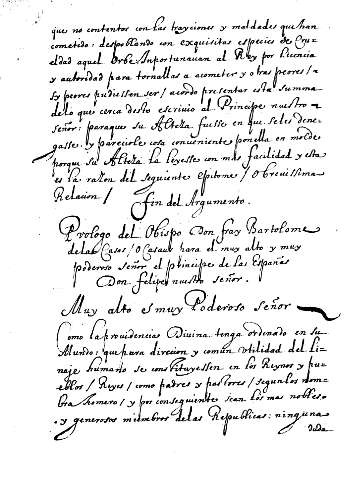 que no contentos con las trayciones y maldades que han
cometido: despoblando con exquisitas especies de cru-
eldad aquel Orbe Inportunauan al Rey por licencia
y autoridad para tornallas a acometer y otras peores / si
peores pudiessen ser / acordo presentar esta summa
de lo que cerca desto escriuio al Principe nuestro
Señor: paraque su Alteza fuesse en que se les dene
gasse. y pareciole cosa conueniente ponella en molde
porque su Alteza la leyesse con mas facilidad y esta
es la razon del seguiente epitome / O breuissima
Relacion /
fin del Argumento.
Prologo del Obispo Don fray Bartolome
de las Casas / O Casaus para el muy alto y muy
poderoso señor el principe de las Españas
Don felipe nuestro señor.
Muy alto es muy Poderoso señor
Como la prouidencia Diuina tenga ordenado en su
Mundo: que para direcion y comun vtilidad del Li-
naje humano se constituyessen en los Reynos y pue
blos / Reyes / como padres y pastores / segun los nom
bra Homero / y por consiguiente sean los mas nobles.
y generosos miembros de las Republicas: ninguna
duda